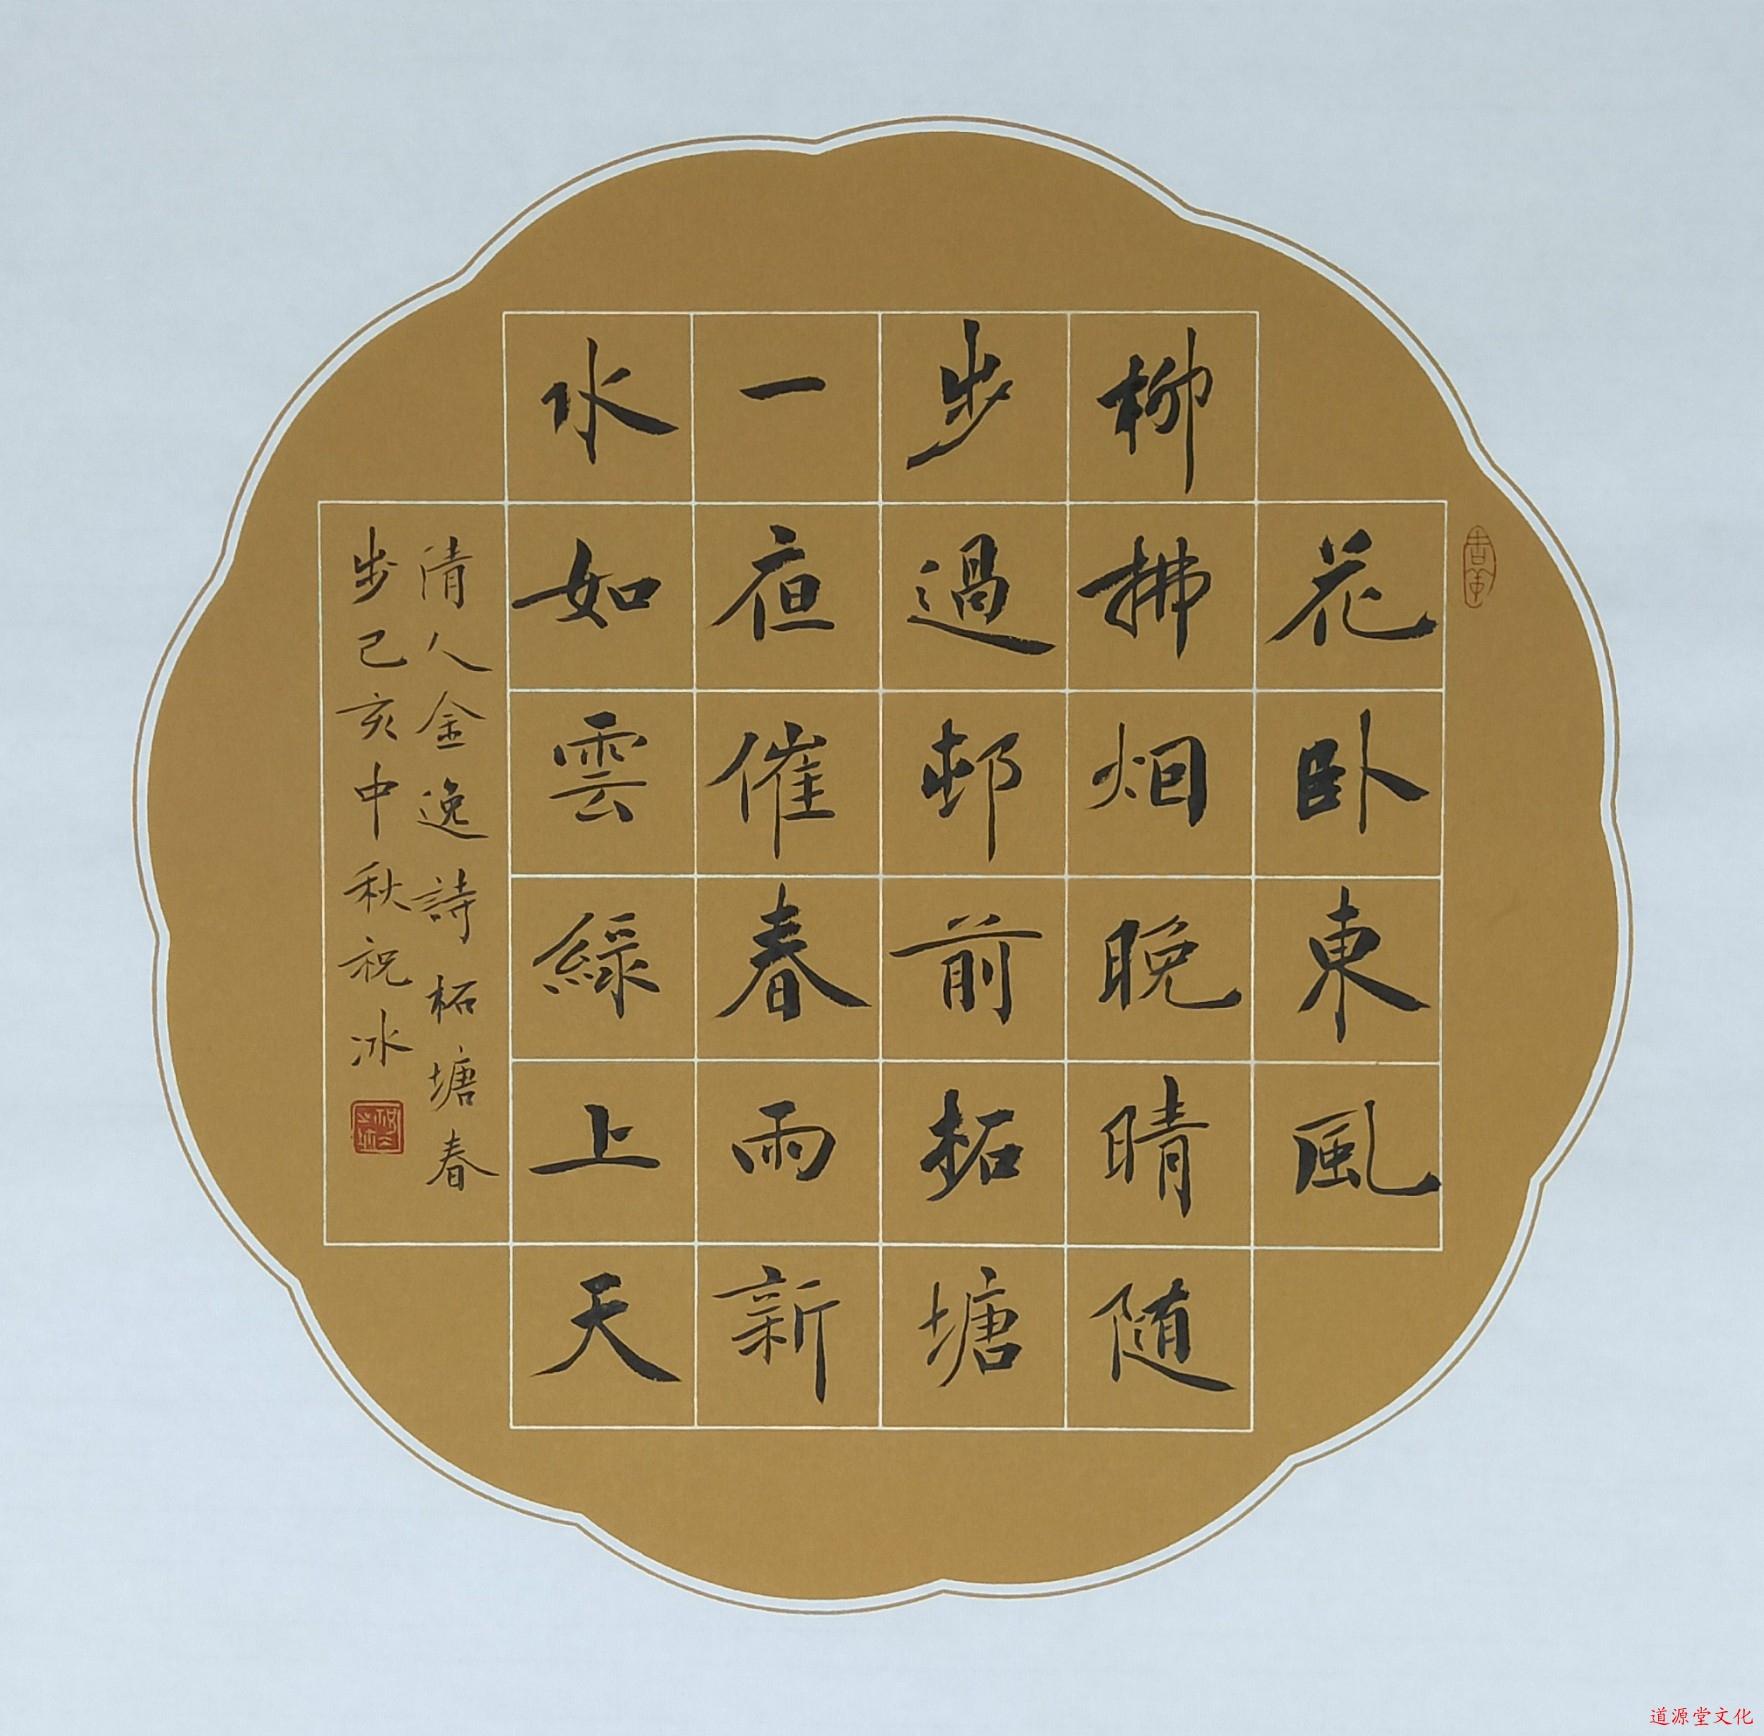 花卧東風
柳拂烟晚晴随
步過邨前柘塘
一夜催春雨新
水如雲綠上天
清人金逸詩柘塘春
步己亥中秋祝冰
道源堂文化